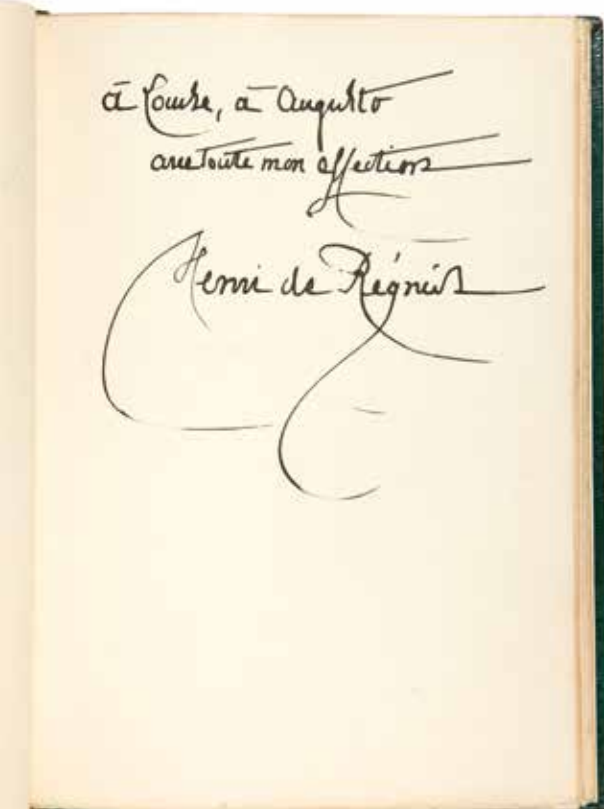 à Louise, à Auguste
avec toute mon affection
Henri de Régnier